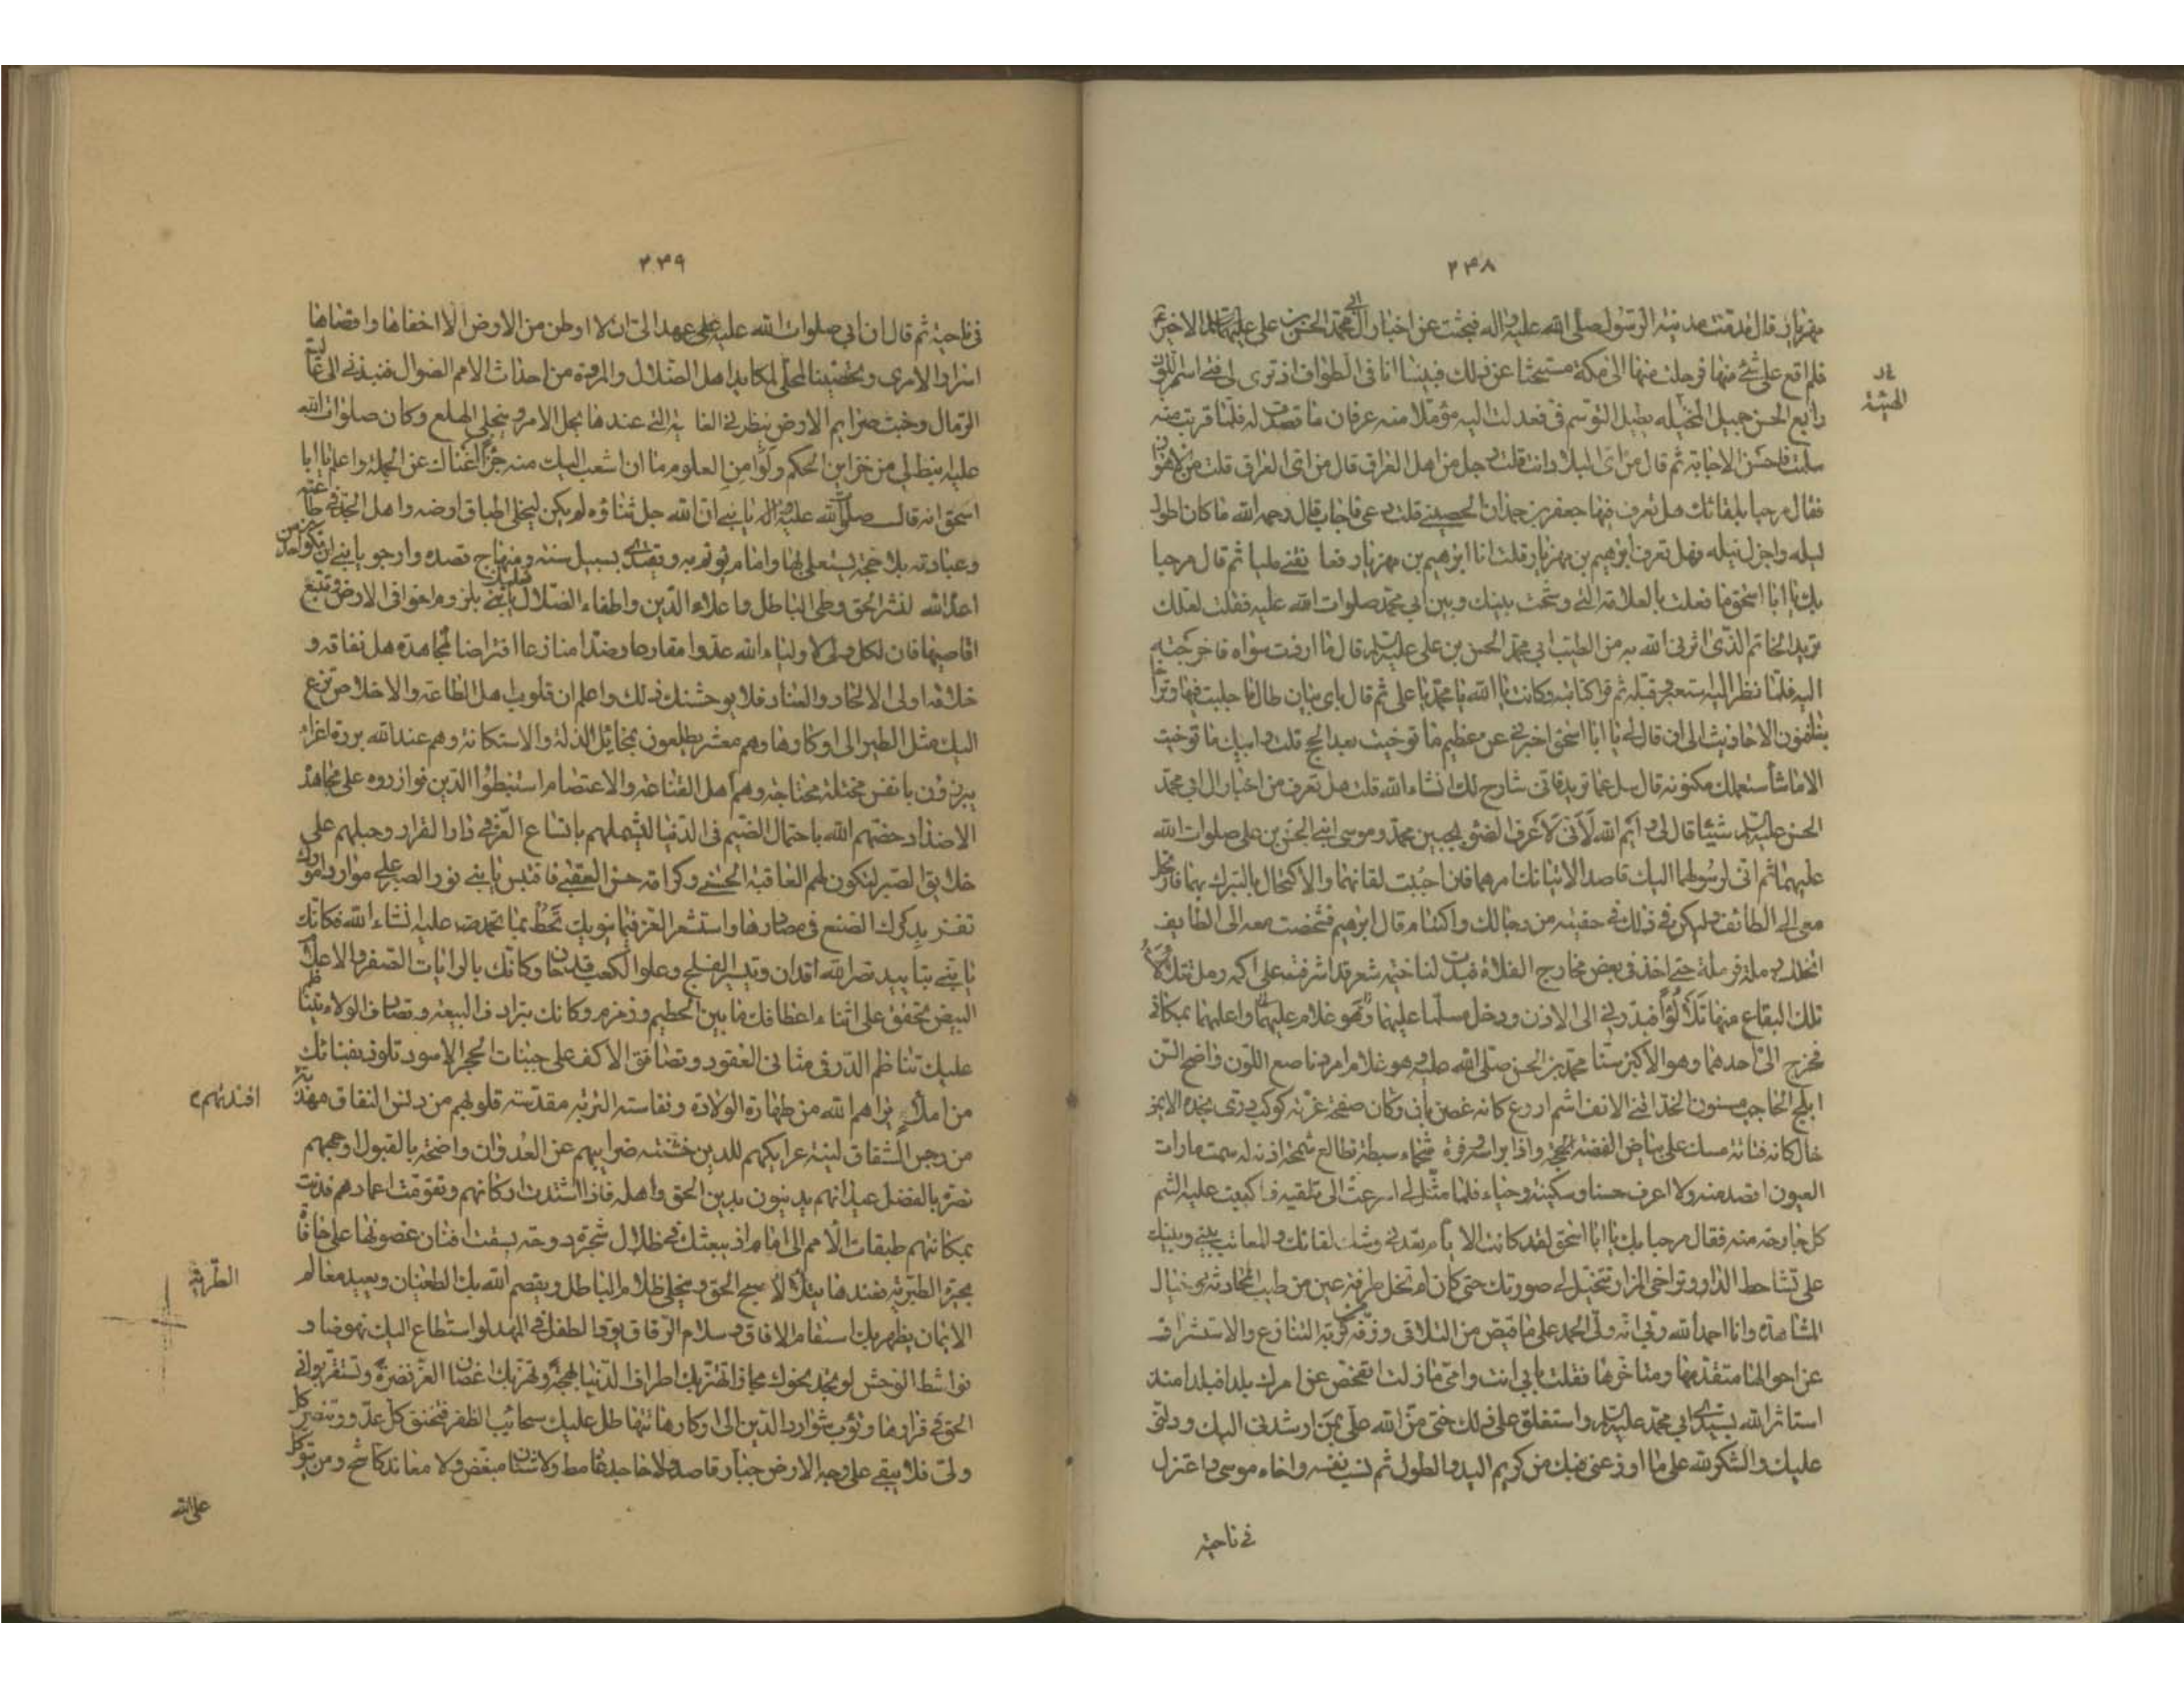 ٢٣٨
مهزيار قال قدمت مدينة الرسول صلى الله عليه واله فبحثت عن اخبار آل ابي محمد الحسن بن علي عليهما السلام الاخير
فلم اقع على شئ منها فرحلت منها الى مكة مستبحثا عن ذلك فبينا انا في الطواف اذ تراى لي فتى اسمر اللون
رايع الحسن جميل المخيلة يطيل التوسم في فعدلت اليه مؤملا منه عرفان ما قصدت له فلما قربت منه
سلمت فاحسن الاجابة ثم قال من اي البلاد انت قلت رجل من اهل العراق قال من اي العراق قلت من الاهواز
فقال مرحبا بلقائك هل تعرف فيها جعفر بن حمدان الحصيني قلت دعي فاجاب قال رحمه الله ما كان اطول
ليله واجزل نيله فهل تعرف ابراهيم بن مهزيار قلت انا ابراهيم بن مهزيار فعانقني مليا ثم قال مرحبا
بك يا ابا اسحق ما فعلت بالعلامة التي وشجت بينك وبين ابي محمد صلوات الله عليه فقلت لعلك
تريد الخاتم الذي اثرني الله به من الطيب ابي محمد الحسن بن علي عليه السلام قال ما اردت سواه فاخرجته
اليه فلما نظر اليه استعبر وقبله ثم قرا كتابته وكانت يا الله يا محمد يا علي ثم قال بابي بنان طال ما جلبت فيها وترا
بفنون الاحاديث الى ان قال لي يا ابا اسحق اخبرني عن عظيم ما توخيت بعد الحج قلت وابيك ما توخيت
الا ما سأستعلمك مكنونه قال سل عما تريد فاني شارح لك انشاء الله قلت هل تعرف من اخبار ال ابي محمد
الحسن عليه السلام شيئا قال لي وايم الله لاني لاعرف الضوء بجبين محمد وموسى ابني الحسن بن علي صلوات الله
عليهما ثم اني لرسولهما اليك قاصدا لانبائك امرهما فان احببت لقائهما والاكتحال بالتبرك بهما فارتحل
معي الى الطائف وليكن ذلك في خفية من رجالك واكتتام قال ابراهيم فشخصت معه الى الطايف
اتخلل رملة فرملة حتى اخذ في بعض مخارج الفلاة فبدت لنا خيمة شعر قد اشرفت على اكمة رمل تتلألأ
تلك البقاع منها تلألؤا فبدرني الى الاذن ودخل مسلما عليهما واعلمهما بمكاني
فخرج الي احدهما وهو الاكبر سنا محمد بن الحسن صلى الله عليه وهو غلام امرد ناصع اللون واضح الجبين
ابلج الحاجب مسنون الخد اقنى الانف اشم اروع كانه غصن بان وكان صفحة غرته كوكب دري بخده الايمن
خال كانه فتاتة مسك على بياض الفضة واذا براسه وفرة سحماء سبطة تطالع شحمة اذنه له سمت ما رات
العيون اقصد منه ولا اعرف حسنا وسكينة وحياء فلما مثل لي اسرعت الى تلقيه فاكببت عليه الثم
كل جارحة منه فقال مرحبا بك يا ابا اسحق لقد كانت الايام تعدني وشك لقائك والمعاتب بيني وبينك
على تشاحط الدار وتراخي المزار تتخيل لي صورتك حتى كان لم نخل طرفة عين من طيب المحادثة وخيال
المشاهدة وانا احمد الله ربي انه ولي الحمد على ما قيض من التلاقي ورفه من كربة التنازع والاستشراف
عن احوالها متقدمها ومتاخرها فقلت بابي انت وامي ما زلت اتفحص عن امرك بلدا فبلدا منذ
استاثر الله بسيدي ابي محمد عليه السلام واستغلق علي ذلك حتى من الله علي بمن ارشدني اليك ودلني
عليك والشكر لله على ما اوزعني فيك من كريم اليد والطول ثم نسب نفسه واخاه موسى واعتزل
في ناحية
الهيئة
٢٣٩
في ناحية ثم قال ان ابي صلوات الله عليه عهد الي ان لا اوطن من الارض الا اخفاها واقصاها
اسرارا لامري وتحصينا لمحلي لمكايد اهل الضلال والمردة من احداث الامم الضوال فنبذني الى عالية
الرمال وجبت صرايم الارض ينظرني الغاية التي عندها يحل الامر وينجلي الهلع وكان صلوات الله
عليه انبط لي من خزاين الحكم وكوامن العلوم ما ان اشعب اليك منه جزءا اغناك عن الجملة واعلم يا ابا
اسحق انه قال صلوات الله عليه يا بني ان الله جل ثناؤه لم يكن ليخلي اطباق ارضه واهل الجد في طاعته
وعبادته بلا حجة يستعلى بها وامام يؤتم به ويقتدى بسبيل سنته ومنهاج قصده وارجو يا بني ان تكون احد من
اعده الله لنشر الحق وطي الباطل واعلاء الدين واطفاء الضلال فعليك يا بني بلزوم خوافي الارض وتتبع
اقاصيها فان لكل ولي لاولياء الله عدوا مقارعا وضدا منازعا افتراضا لمجاهدة اهل نفاقه و
خلافه اولي الالحاد والعناد فلا يوحشنك ذلك واعلم ان قلوب اهل الطاعة والاخلاص نزع
اليك مثل الطير الى اوكارها وهم معشر يطلعون بمخايل الذلة والاستكانة وهم عند الله بررة اعزاء
يبرزون بانفس مختلة محتاجة وهم اهل القناعة والاعتصام استنبطوا الدين فوازروه على مجاهدة
الاضداد خصهم الله باحتمال الضيم في الدنيا ليشملهم باتساع العز في دار القرار وجبلهم على
خلايق الصبر لتكون لهم العاقبة الحسنى وكرامة حسن العقبى فاقتبس يا بني نور الصبر على موارد امورك
تفز بدرك الصنع في مصادرها واستشعر العز فيما ينوبك تحظ بما تحمد عليه انشاء الله فكانك
يا بني بتاييد نصر الله قد ان وتيسير الفلج وعلو الكعب قد حان وكانك بالرايات الصفر والاعلام
البيض تخفق على اثناء اعطافك ما بين الحطيم وزمزم وكانك بترادف البيعة وتصافي الولاء يتناظم
عليك تناظم الدر في مثاني العقود وتصافق الاكف على جنبات الحجر الاسود تلوذ بفنائك
من ملأ براهم الله من طهارة الولادة ونفاسة التربة مقدسة قلوبهم من دنس النفاق مهذبة
من رجس الشقاق لينة عرايكهم للدين خشنة ضرايبهم عن العدوان واضحة بالقبول اوجههم
نضرة بالفضل عيدانهم يدينون بدين الحق واهله فاذا اشتدت اركانهم وتقومت اعمادهم فدت
بمكانتهم طبقات الامم الى امام اذ تبعتك في ظلال شجرة دوحة بسقت افنان غصونها على حافات
بحيرة الطبرية فعندها يتلألأ صبح الحق وينجلي ظلام الباطل ويقصم الله بك الطغيان ويعيد معالم
الايمان يظهر بك اسقام الافاق وسلام الرفاق يود الطفل في المهد لو استطاع اليك نهوضا و
نواشط الوحش لو تجد نحوك مجازا تهتز بك اطراف الدنيا بهجة وتهز بك اغصان العز نضرة وتستقر بواني
الحق في قرارها وتؤب شوارد الدين الى اوكارها تتهاطل عليك سحايب الظفر فتخنق كل عدو وتنصر كل
ولي فلا يبقى على وجه الارض جبار قاسط ولا جاحد غامط ولا شانئ مبغض ولا معاند كاشح ومن يتوكل
افئدتهم
الطبرية
على الله